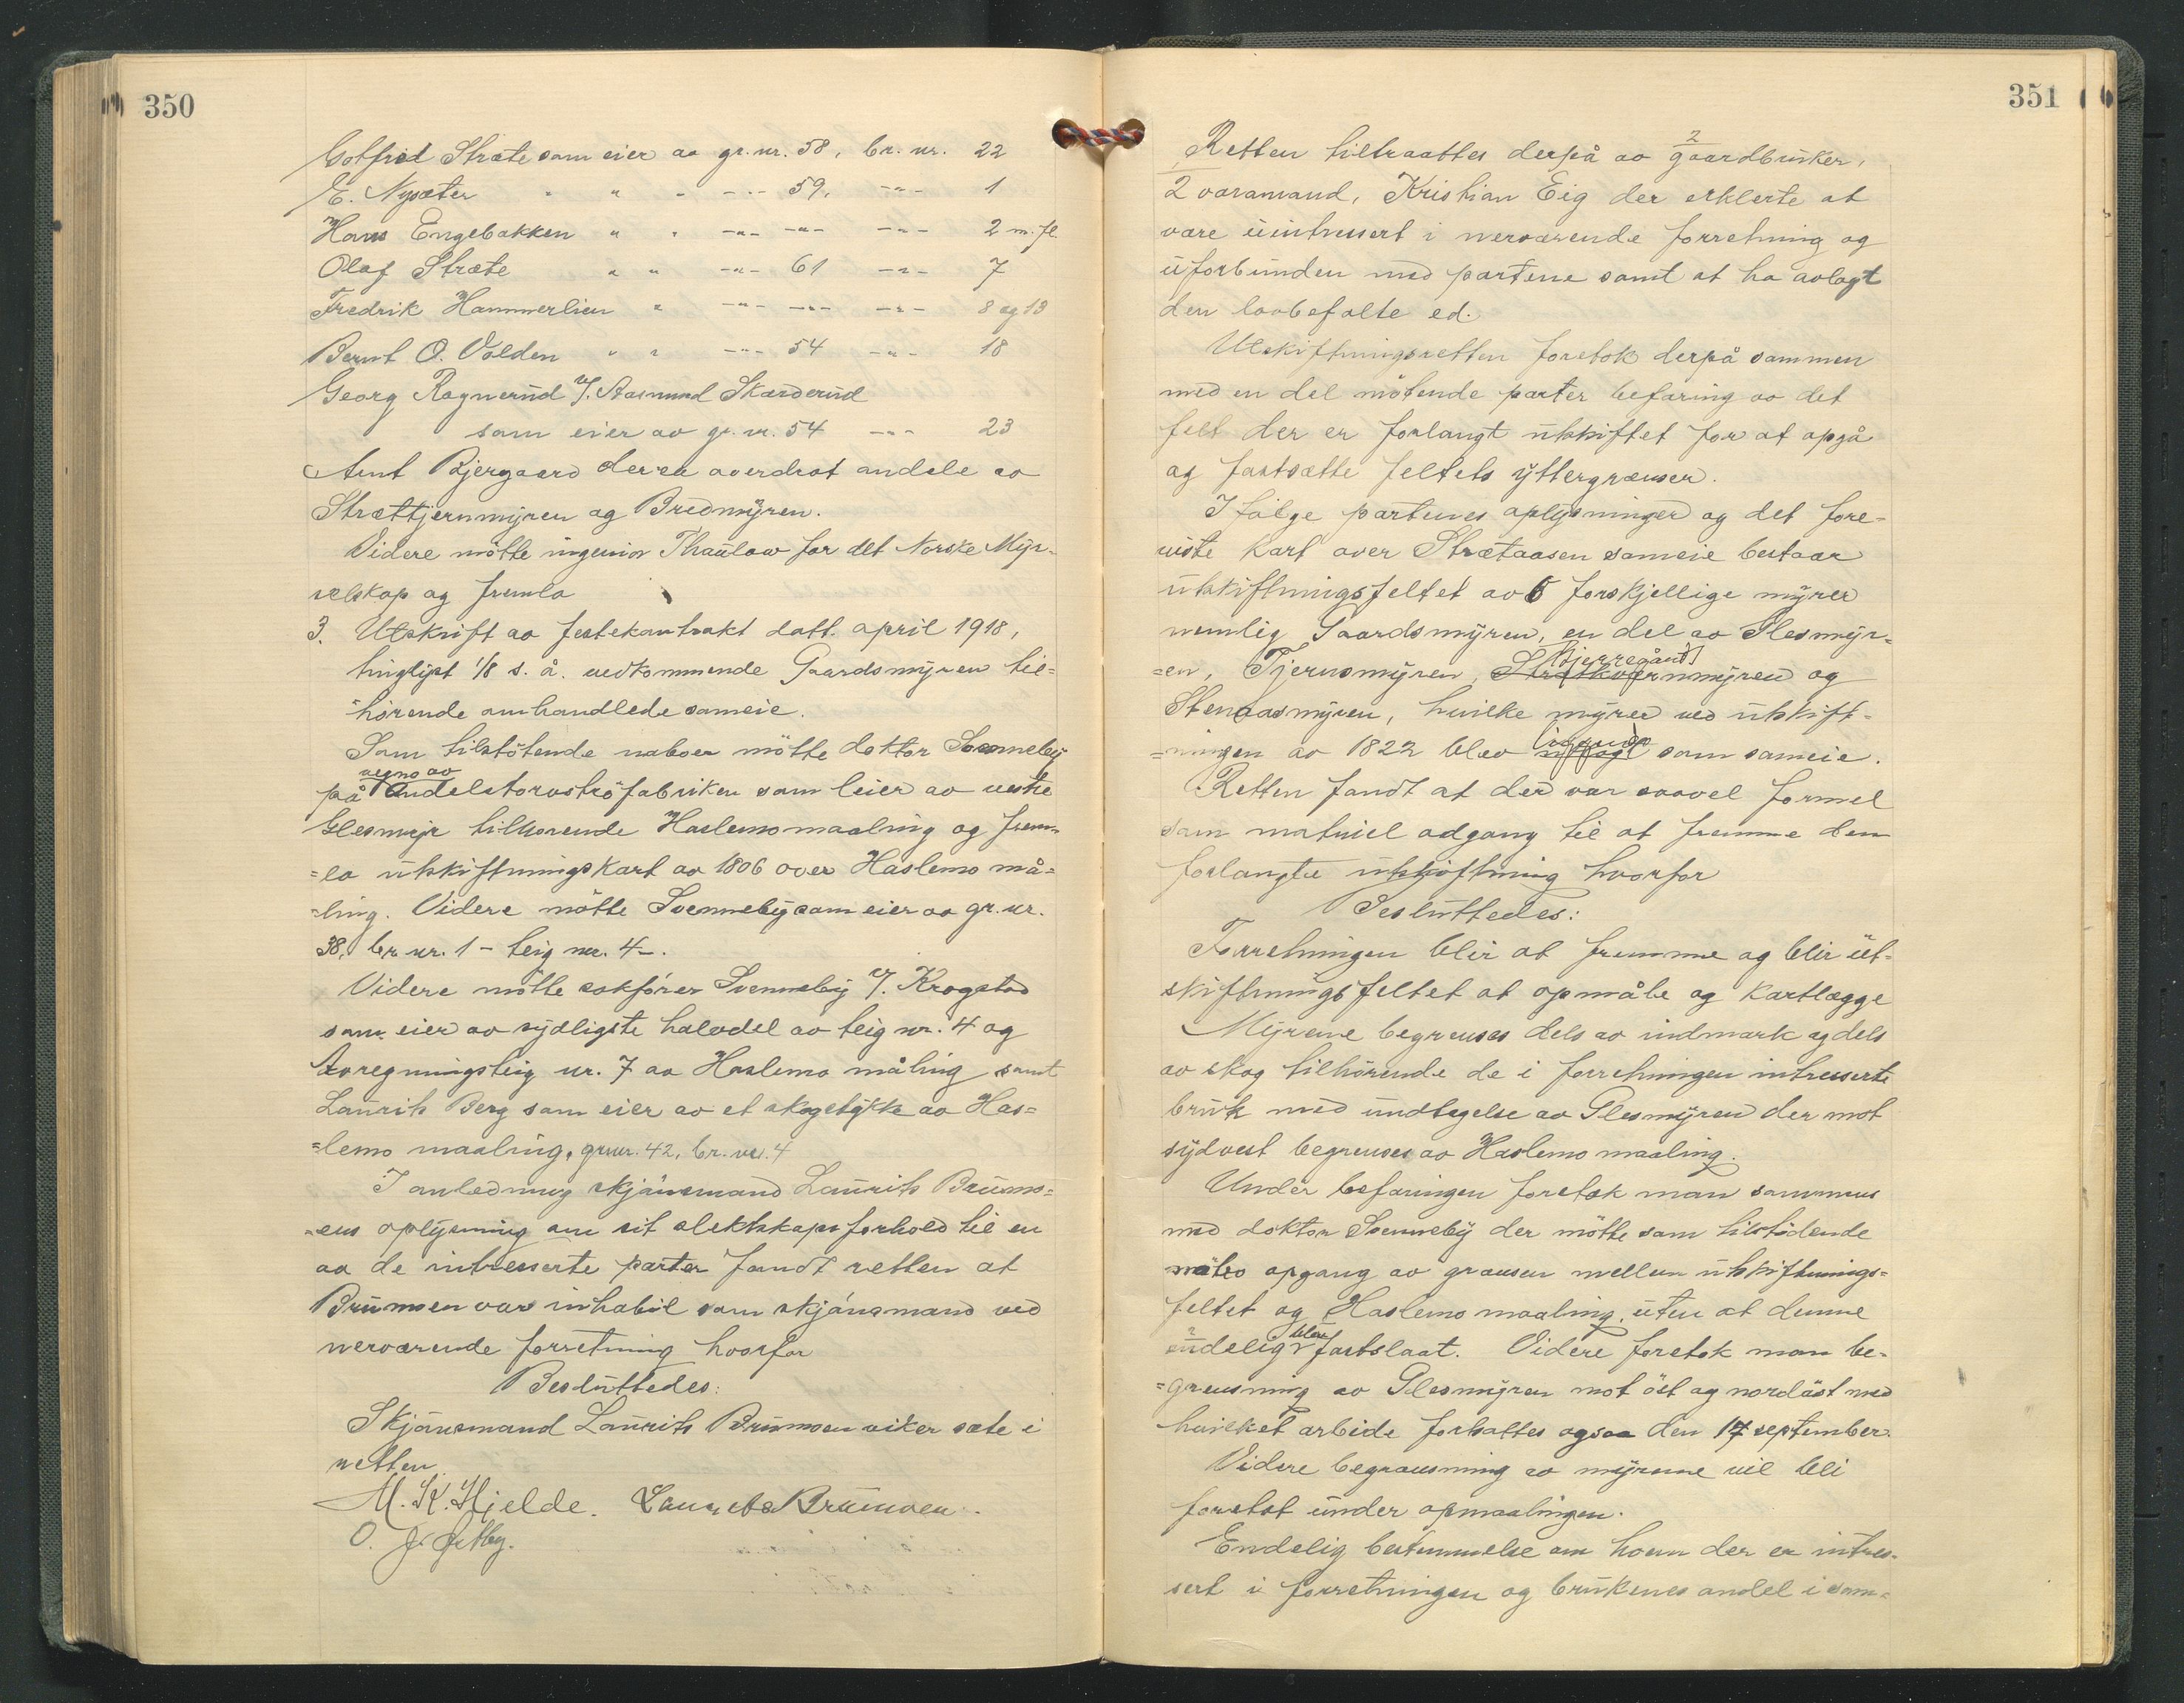 350
Gotfred Stræte som eier av gr.nr. 58, br.nr. 22
E. Nysæter " " " -"- 59, -"- 1
Hans Engebakken " " -"- -"- -"- 2 m.fl.
Olaf Stræte " " -"- 61 -"- 7
Fredrik Hammerlien " -"- -"- -"- 8 og 13
Bernt O. Volden " " -"- 54 -"- 18
Georg Ragnerud v/. Aasmund Skarderud
som eier av gr.nr. 54 -"- 23
Arnt Bjergaard der er averdrat andele av
Strættjernmyren og Bredmyren.
Videre møtte ingeniør Thaulow for det Norske Myr-
selskap og fremla
3. Utskrift av festekontrakt datt. april 1918,
tinglyst 1/8 s. å. vedkommende Gaardsmyren til=
hørende omhandlede sameie.
Som tilstøtende naboer møtte doktor Svenneby
på vegne av Andelstorvströfabriken som leier av vestre
Glesmyr tilhørende Haslemomaaling og frem=
=la utskiftningskart av 1806 over Haslemo må=
=ling. Videre møtte Svenneby som eier av gr.nr.
38, br.nr. 1 - teig nr. 4 -.
Videre møtte sakfører Svenneby v/. Krogstad
som eier av sydligste halvdel av teig nr. 4 og
Avregningsteig nr. 7 av Haslemo måling samt
Laurits Berg som eier av et skogstykke av Has=
=lemo maaling, gr.nr. 42, br.nr. 4
I anledning skjønsmand Laurits Brumo=
=ens oplysning om sit slektskapsforhold til en
av de intresserte parter fandt retten at
Brumoen var inhabil som skjønsmand ved
nerværende forretning hvorfor
Besluttedes:
Skjønsmand Laurits Brumoen viker sæte i
retten.
M. K. Hjelde. Laurits Brumoen.
O. J.
351
Retten tiltraattes derpå av 2 gaardbruker,
2 varamand, Kristian Eig der erklerte at
være uintressert i nerværende forretning og
uforbunden med partene samt at ha avlagt
den lovbefalte ed.
Utskiftningsretten foretok derpå sammen
med en del møtende parter befaring av det
felt der er forlangt utskiftet for at opgå
og fastsætte feltets yttergrænser.
Ifølge partenes oplysninger og det fore-
viste kart over Strætaasen sameie bestaar
utskiftningsfeltet av 6 forskjellige myrer
nemlig Gaardsmyren, en del av Glesmyr=
=en, Tjernsmyren, Strætkværnmyren og
Stenaasmyren, hvilke myrer ved utskift=
=ningen av 1822 blev utlagt som sameie.
Retten fandt at der var saavel formel
som matriel adgang til at fremme den
forlangte utskiftning hvorfor
Besluttedes:
Forretningen blir at fremme og blir ut-
skiftningsfeltet at opmåle og kartlægge
Myrene begrenses dels av indmark og dels
av skog tilhørende de i forretningen intresserte
bruk med undtagelse av Glesmyren der mot
sydvest begrenses av Haslemo maaling.
Under befaringen foretok man sammen
med doktor Svenneby der møtte som tilstødende
nabo opgang av grænsen mellem utskiftnings=
feltet og Haslemo maaling, uten at denne
endelig blev fastslaat. Videre foretok man be-
=grensning av Glesmyren mot öst og nordöst med
hvilket arbeide fortsattes ogsaa den 17 september.
Videre begrænsning av myrene vil bli
foretat under opmaalingen.
Endelig bestemmelse om hvem der er intres-
sert i forretningen og brukenes andel i sam=